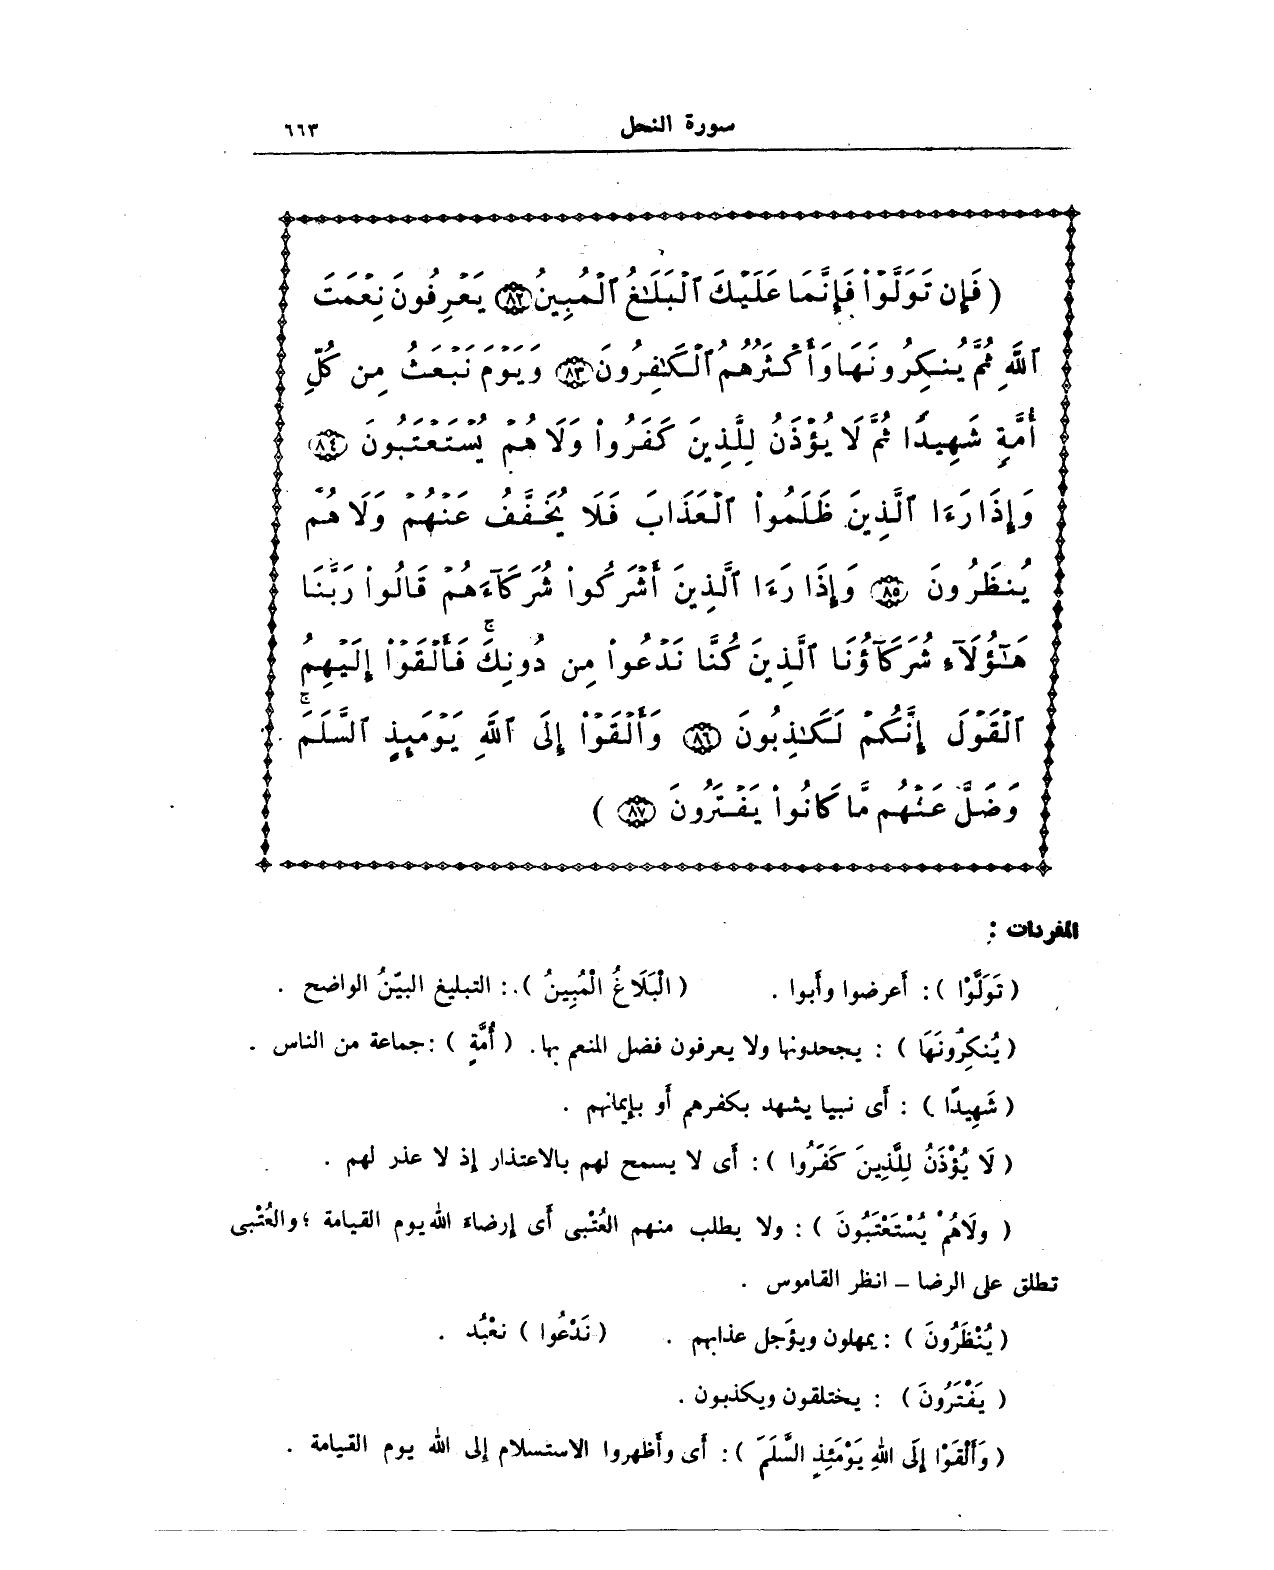 سورة النحل ٦٦٣
( فَإِن تَوَلَّوْاْ فَإِنَّمَا عَلَيْكَ ٱلْبَلَٰغُ ٱلْمُبِينُ ٨٢ يَعْرِفُونَ نِعْمَتَ
ٱللَّهِ ثُمَّ يُنكِرُونَهَا وَأَكْثَرُهُمُ ٱلْكَٰفِرُونَ ٨٣ وَيَوْمَ نَبْعَثُ مِن كُلِّ
أُمَّةٍ شَهِيدًا ثُمَّ لَا يُؤْذَنُ لِلَّذِينَ كَفَرُواْ وَلَا هُمْ يُسْتَعْتَبُونَ ٨٤
وَإِذَا رَءَا ٱلَّذِينَ ظَلَمُواْ ٱلْعَذَابَ فَلَا يُخَفَّفُ عَنْهُمْ وَلَا هُمْ
يُنظَرُونَ ٨٥ وَإِذَا رَءَا ٱلَّذِينَ أَشْرَكُواْ شُرَكَآءَهُمْ قَالُواْ رَبَّنَا
هَٰٓؤُلَآءِ شُرَكَآؤُنَا ٱلَّذِينَ كُنَّا نَدْعُواْ مِن دُونِكَ ۖ فَأَلْقَوْاْ إِلَيْهِمُ
ٱلْقَوْلَ إِنَّكُمْ لَكَٰذِبُونَ ٨٦ وَأَلْقَوْاْ إِلَى ٱللَّهِ يَوْمَئِذٍ ٱلسَّلَمَ ۖ
وَضَلَّ عَنْهُم مَّا كَانُواْ يَفْتَرُونَ ٨٧ )
المفردات :
( تَوَلَّوْا ) : أعرضوا وأبوا . ( الْبَلَاغُ الْمُبِينُ ) : التبليغ البيّنُ الواضح .
( يُنكِرُونَهَا ) : يجحدونها ولا يعرفون فضل المنعم بها . ( أُمَّةٍ ) : جماعة من الناس .
( شَهِيدًا ) : أى نبيا يشهد بكفرهم أو بإيمانهم .
( لَا يُؤْذَنُ لِلَّذِينَ كَفَرُوا ) : أى لا يسمح لهم بالاعتذار إذ لا عذر لهم .
( ولَاهُمْ يُسْتَعْتَبُونَ ) : ولا يطلب منهم العُتْبى أى إرضاء الله يوم القيامة ؛ والعُتْبى
تطلق على الرضا ــ انظر القاموس .
( يُنْظَرُونَ ) : يمهلون ويؤَجل عذابهم . ( نَدْعُوا ) نعْبُد .
( يَفْتَرُونَ ) : يختلقون ويكذبون .
( وَأَلْقَوْا إِلَى اللهِ يَوْمَئِذٍ السَّلَمَ ) : أى وأظهروا الاستسلام إلى الله يوم القيامة .